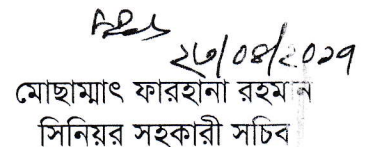 ২৩/০৪/২০১৭
মোছাম্মাৎ ফারহানা রহমান
সিনিয়র সহকারী সচিব